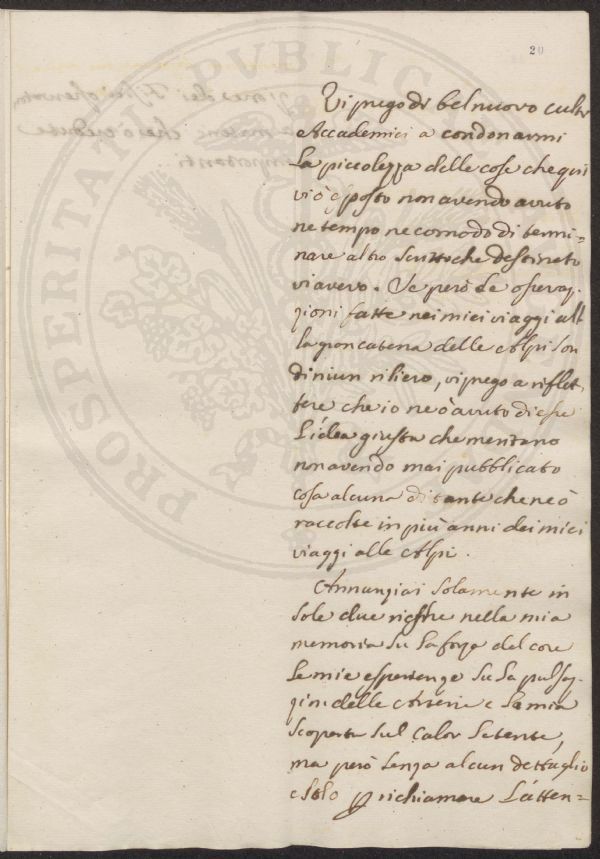 20
Vi prego di bel nuovo culti
Accademici a condonarmi
la piccolezza delle cose che qui
vi ò esposto non avendo avuto
ne tempo ne comodo di termi=
nare altro scritto che destinato
vi avevo. Se però le osservaz-
zioni fatte nei miei viaggi all
la gran catena delle Alpi son
di niun riliero, vi prego a riflet-
tere che io ne ò avuto di esse
l'idea giusta che meritano
non avendo mai pubblicato
cosa alcuna di tante che ne ò
raccolte in più anni dei miei
viaggi alle Alpi.
Annunziai solamente in
sole due righe nella mia
memoria su la forza del core
le mie esperienze su la pulsaz-
zion delle Arterie e la mia
scoperta sul calor latente,
ma però senza alcun dettaglio
e solo p richiamare l'atten=
PROSPERITATI PVBLICAE